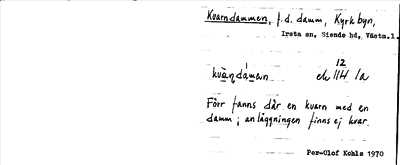 Kvarndammen, f.d. damm, Kyrkbyn,
Irsta sn, Siende hd, Västm.l.
12
kvàṇdámen
Förr fanns där en kvarn med en
damm; anläggningen finns ej kvar.
Per-Olof Kohls 1970